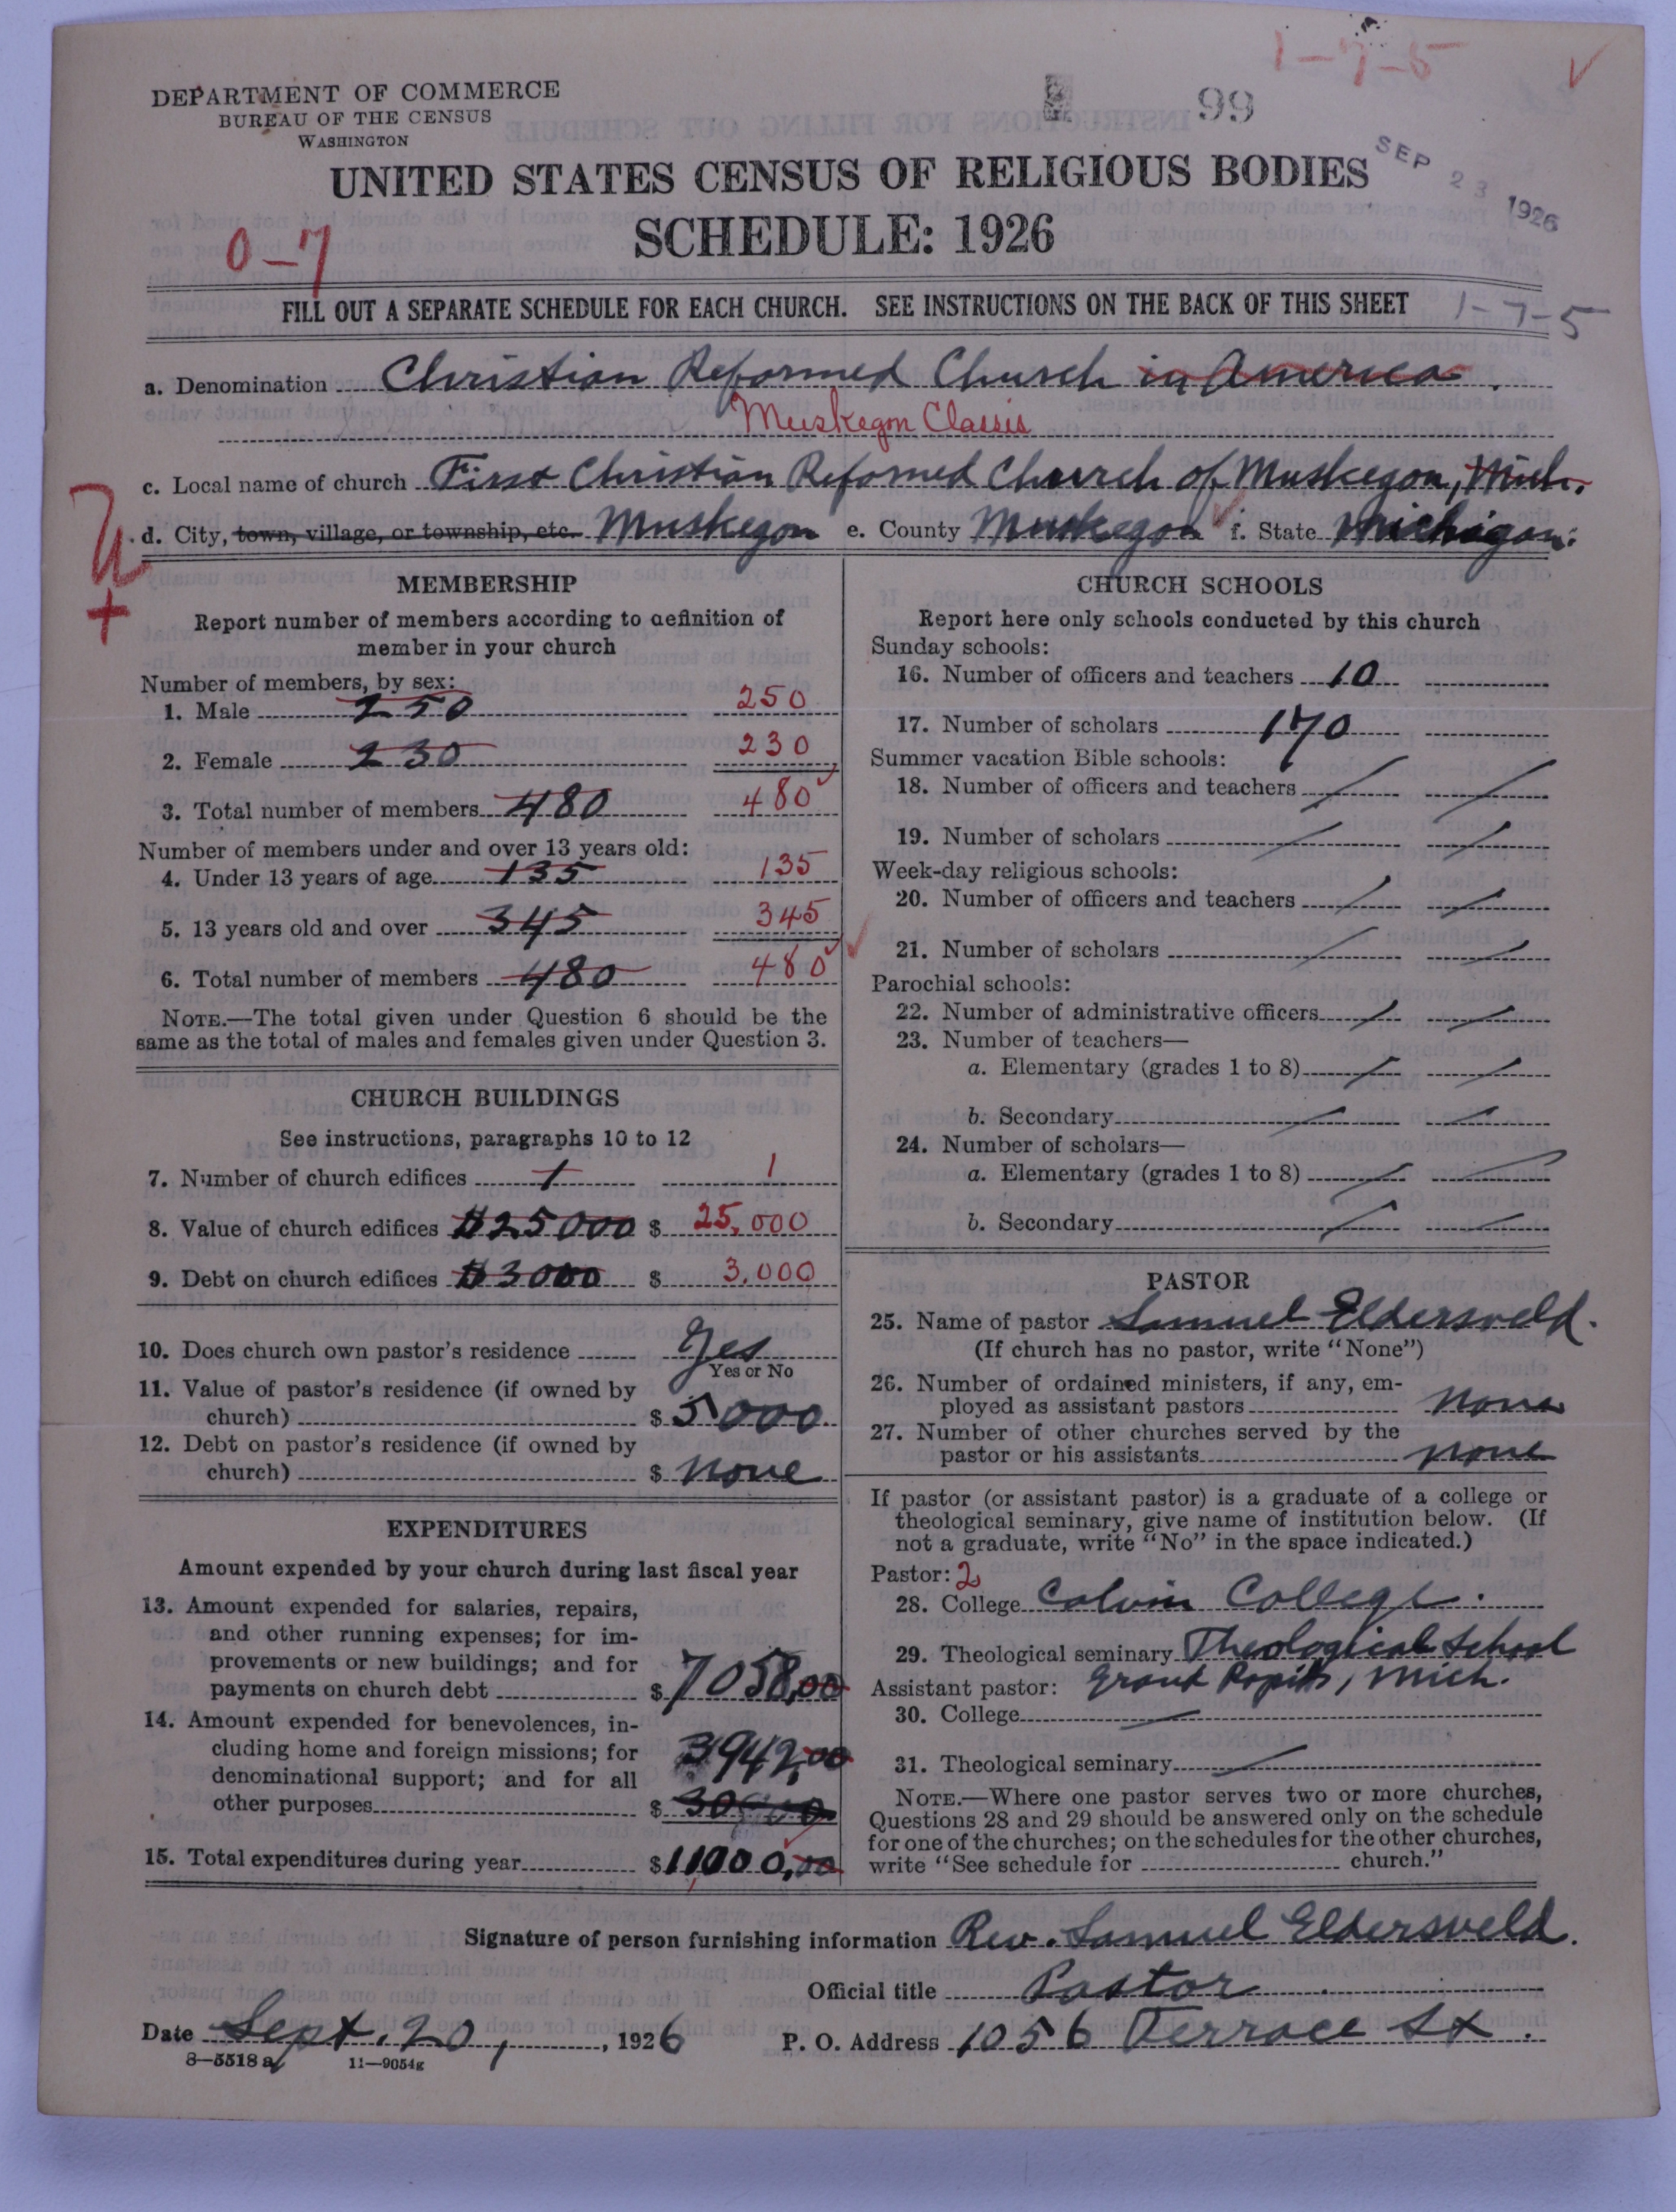 1-7-5
DEPARTMENT OF COMMERCE
BUREAU OF THE CENSUS
WASHINGTON
99
SEP 23 1926
UNITED STATES CENSUS OF RELIGIOUS BODIES
SCHEDULE: 1926
0-7
FILL OUT A SEPARATE SCHEDULE FOR EACH CHURCH. SEE INSTRUCTIONS ON THE BACK OF THIS SHEET
1-7-5
a. Denomination Christian Reformed Church in America.
Muskegon Classis
c. Local name of church First Christian Reformed Church of Muskegon, Mich.
d. City, town, village, or township, etc. Muskegon e. County Muskegon f. State Michigan.
MEMBERSHIP
Report number of members according to definition of
member in your church
Number of members, by sex:
1. Male 250 250
2. Female 230 230
3. Total number of members 480 480
Number of members under and over 13 years old:
4. Under 13 years of age 135 135
5. 13 years old and over 345 345
6. Total number of members 480 480
NOTE.—The total given under Question 6 should be the
same as the total of males and females given under Question 3.
CHURCH BUILDINGS
See instructions, paragraphs 10 to 12
7. Number of church edifices 1 1
8. Value of church edifices $25000 $ 25,000
9. Debt on church edifices $3000 $ 3,000
10. Does church own pastor's residence Yes
Yes or No
11. Value of pastor's residence (if owned by
church) $ 5000
12. Debt on pastor's residence (if owned by
church) $ none
EXPENDITURES
Amount expended by your church during last fiscal year
13. Amount expended for salaries, repairs,
and other running expenses; for im-
provements or new buildings; and for
payments on church debt $ 7058,00
14. Amount expended for benevolences, in-
cluding home and foreign missions; for
denominational support; and for all
other purposes $ 3942,00
15. Total expenditures during year $11000,00
CHURCH SCHOOLS
Report here only schools conducted by this church
Sunday schools:
16. Number of officers and teachers 10
17. Number of scholars 170
Summer vacation Bible schools:
18. Number of officers and teachers
19. Number of scholars
Week-day religious schools:
20. Number of officers and teachers
21. Number of scholars
Parochial schools:
22. Number of administrative officers
23. Number of teachers—
a. Elementary (grades 1 to 8)
b. Secondary
24. Number of scholars—
a. Elementary (grades 1 to 8)
b. Secondary
PASTOR
25. Name of pastor Samuel Eldersveld.
(If church has no pastor, write "None")
26. Number of ordained ministers, if any, em-
ployed as assistant pastors none
27. Number of other churches served by the
pastor or his assistants none
If pastor (or assistant pastor) is a graduate of a college or
theological seminary, give name of institution below. (If
not a graduate, write "No" in the space indicated.)
Pastor: 2
28. College Calvin College.
29. Theological seminary Theological School
Assistant pastor: Grand Rapids, Mich.
30. College
31. Theological seminary
NOTE.—Where one pastor serves two or more churches,
Questions 28 and 29 should be answered only on the schedule
for one of the churches; on the schedules for the other churches,
write "See schedule for church."
Signature of person furnishing information Rev. Samuel Eldersveld.
Official title Pastor
Date Sept. 20, 1926 P. O. Address 1056 Terrace St.
8—5518 a 11—9054g